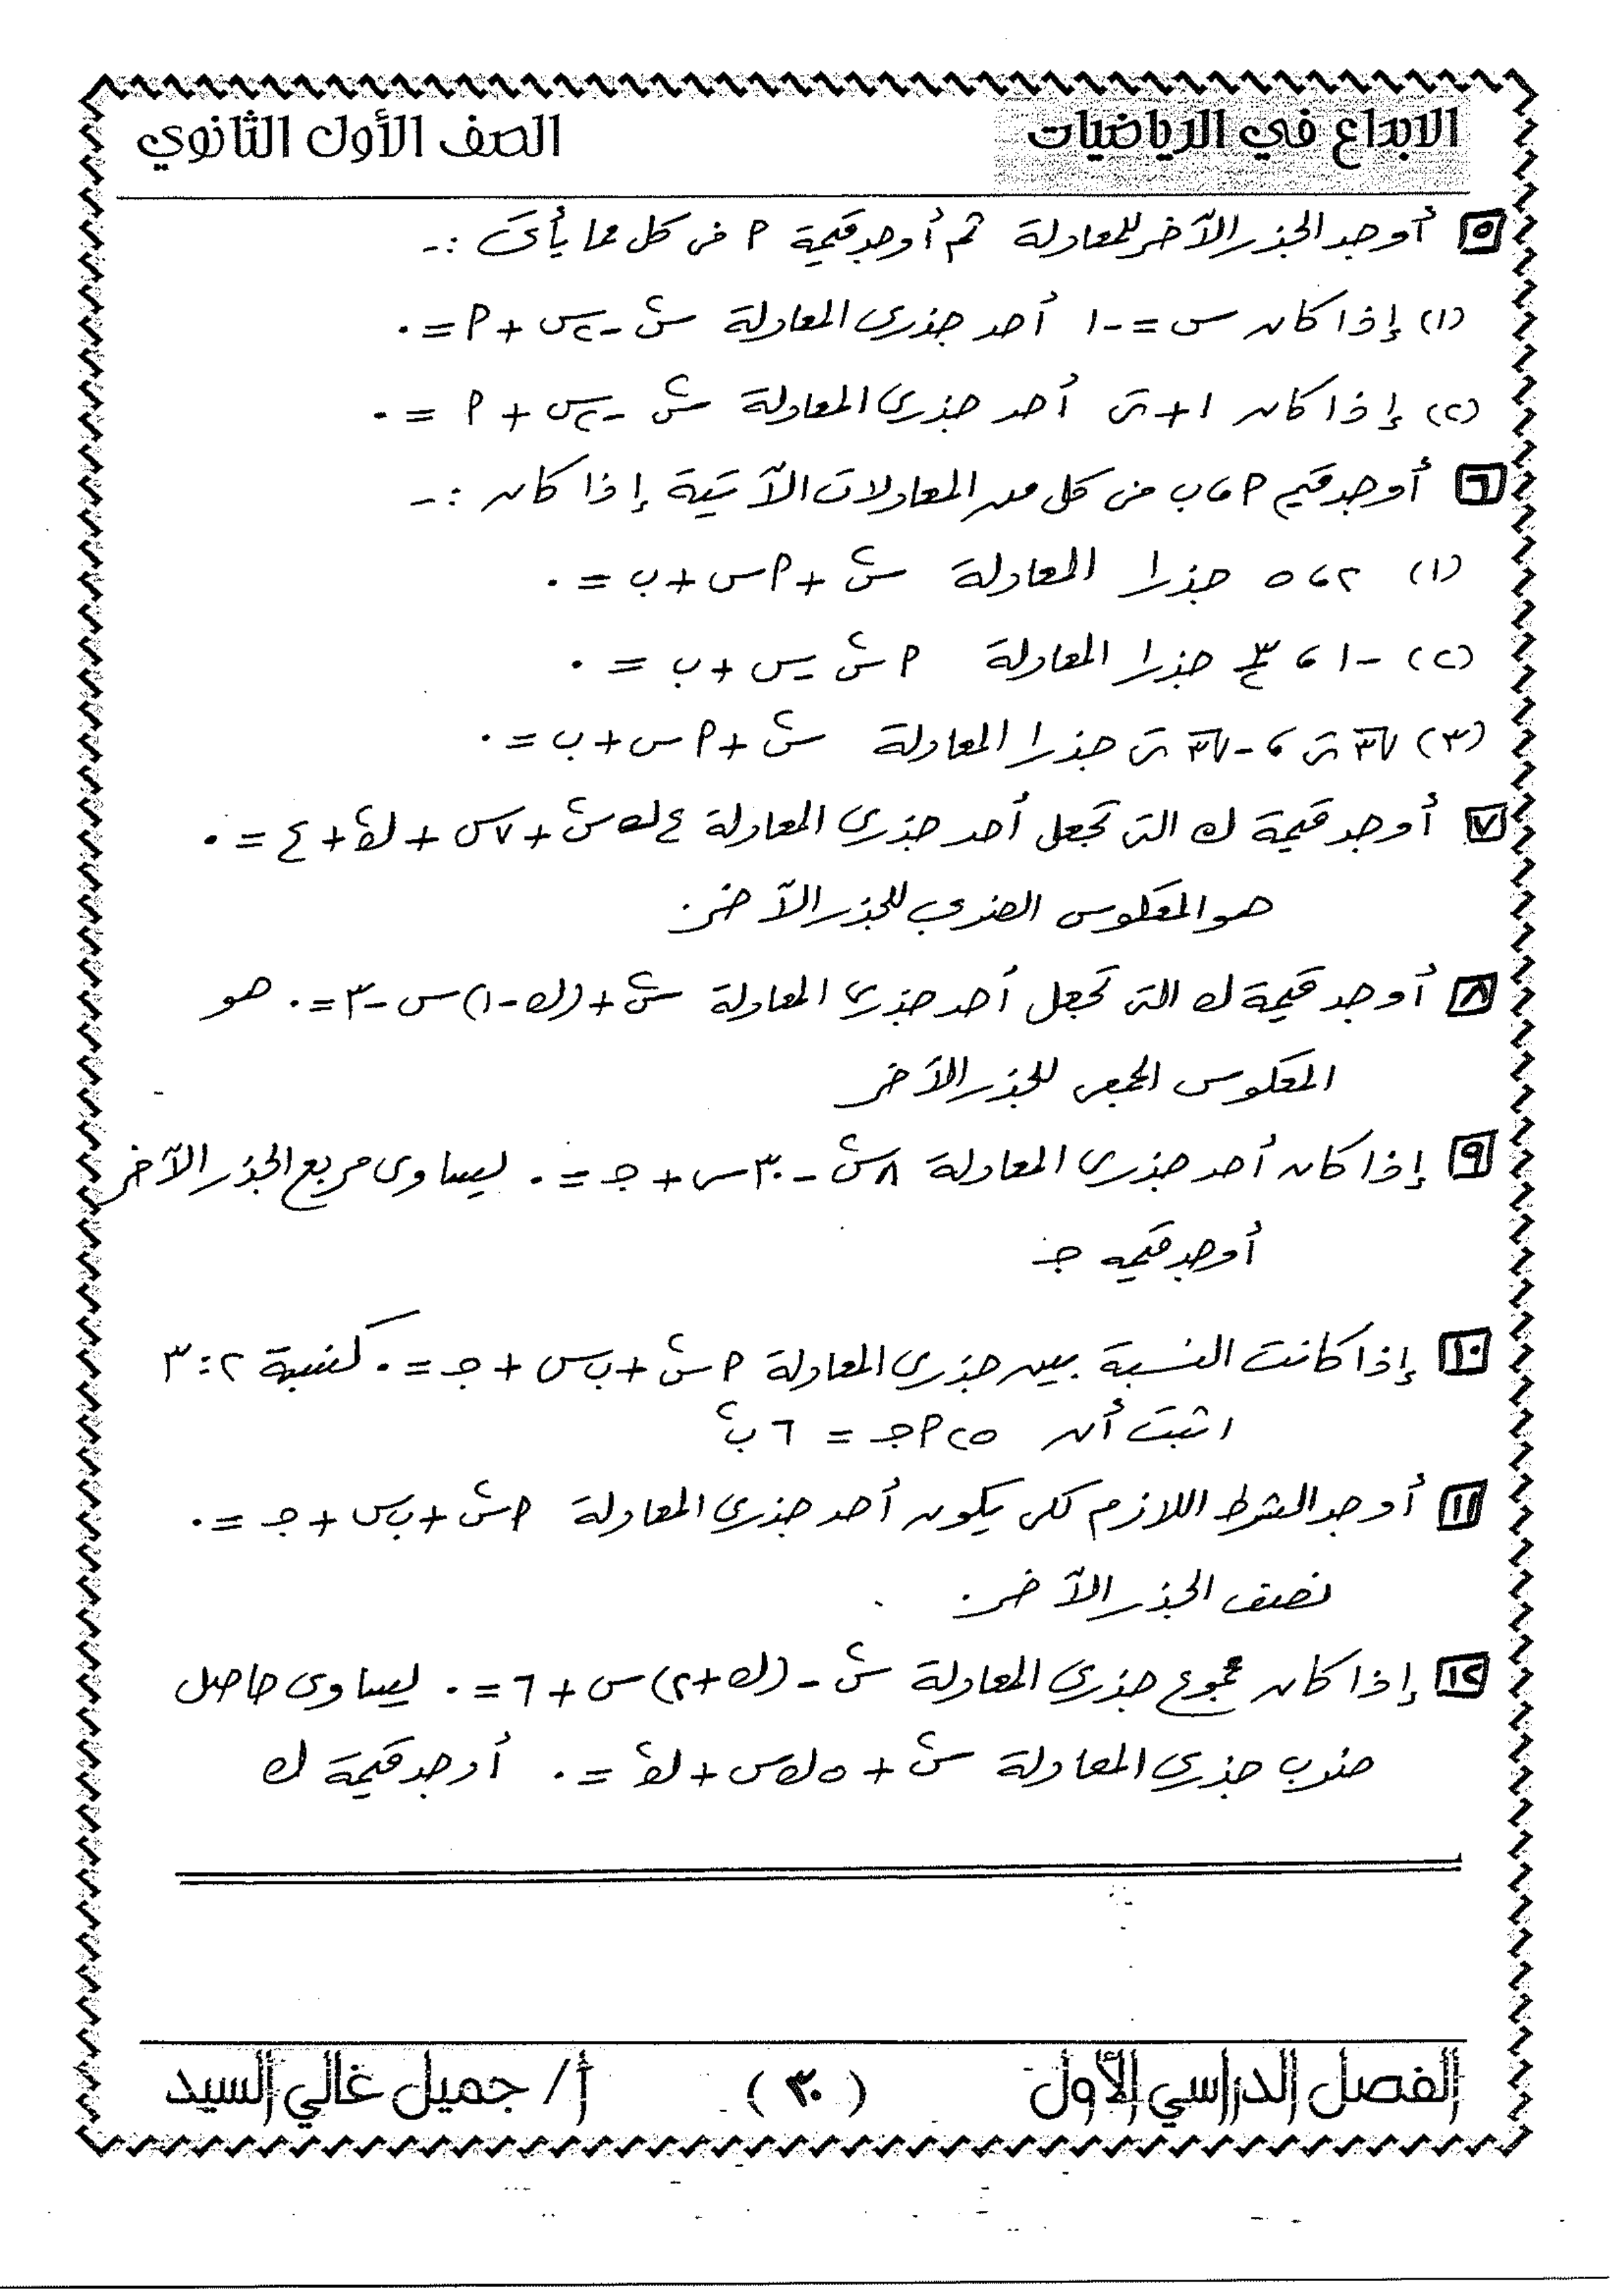 الابداع في الرياضيات
الصف الأول الثانوي
٥ أوجد الجذر الآخر للمعادلة ثم أوجد قيمة P فى كل مما يأتى :-
(١) إذا كان س = -١ أحد جذرى المعادلة س² - ٢س + P = ٠
(٢) إذا كان ١ + ت أحد جذرى المعادلة س² - ٢س + P = ٠
٦ أوجد قيم P ، ب فى كل من المعادلات الآتية إذا كان :-
(١) ٢ ، ٥ جذرا المعادلة س² + P س + ب = ٠
(٢) -١ ، ٣/٢ جذرا المعادلة P س² - س + ب = ٠
(٣) √٣ ت ، -√٣ ت جذرا المعادلة س² + P س + ب = ٠
٧ أوجد قيمة ك التى تجعل أحد جذرى المعادلة ٤ ك س² + ٧س + ك² + ٤ = ٠
هو المعكوس الضربى للجذر الآخر.
٨ أوجد قيمة ك التى تجعل أحد جذرى المعادلة س² + (ك - ١) س - ٣ = ٠ هو
المعكوس الجمعى للجذر الآخر
٩ إذا كان أحد جذرى المعادلة ٨س² - ٣٠س + جـ = ٠ يساوى مربع الجذر الآخر
أوجد قيمه جـ
١٠ إذا كانت النسبة بين جذرى المعادلة P س² + ب س + جـ = ٠ كنسبة ٢ : ٣
اثبت أن ٢٥ P جـ = ٦ ب²
١١ أوجد الشرط اللازم لكى يكون أحد جذرى المعادلة P س² + ب س + جـ = ٠
نصف الجذر الآخر.
١٢ إذا كان مجموع جذرى المعادلة س² - (ك + ٢) س + ٦ = ٠ يساوى حاصل
ضرب جذرى المعادلة س² + ٥ ك س + ك² = ٠ أوجد قيمة ك
الفصل الدراسي الأول
( ٣٠ )
أ / جميل غالي السيد